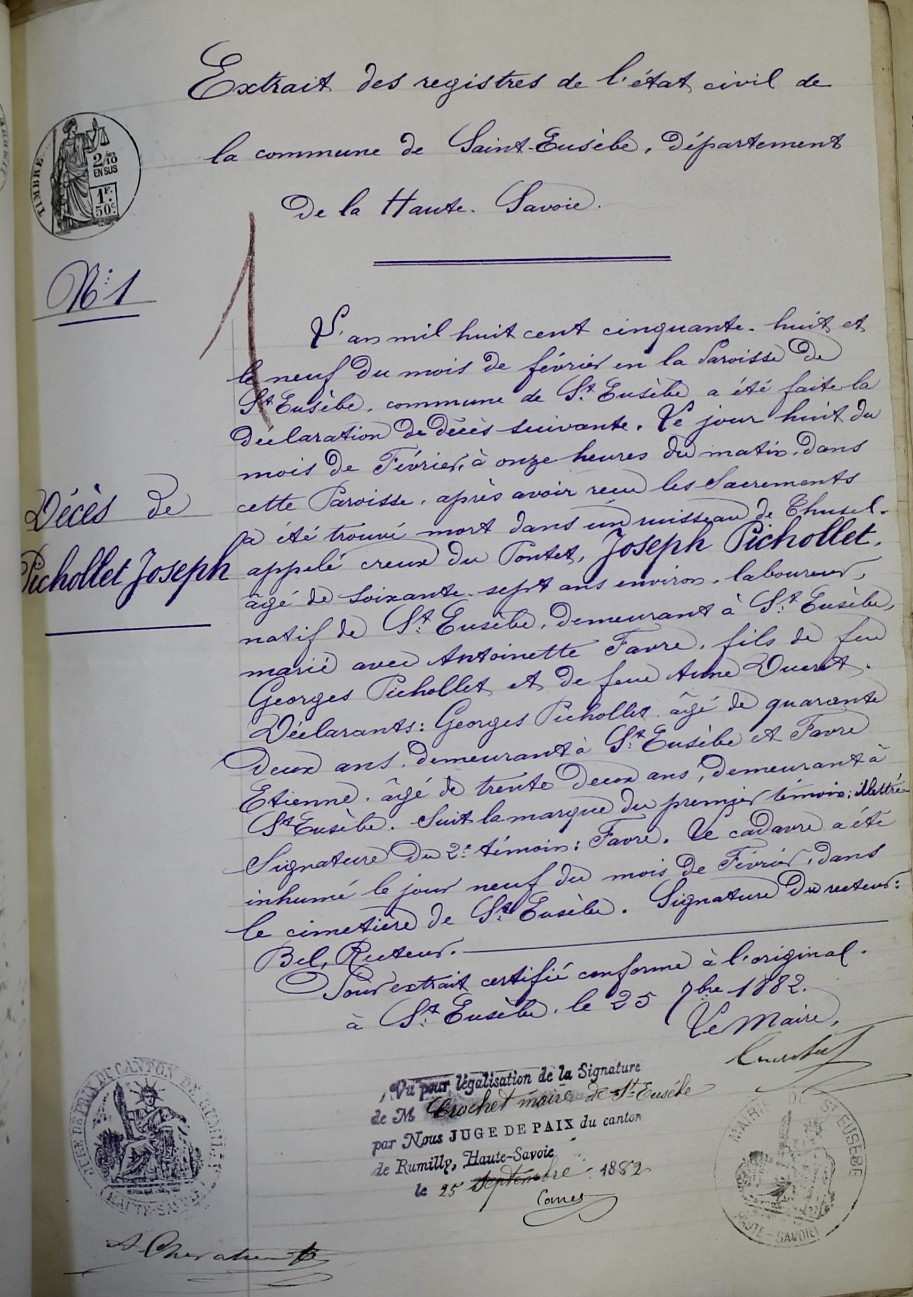 Extrait des registres de l'état civil de
la commune de Saint-Eusèbe, département
de la Haute-Savoie.
TIMBRE
2/10
EN SUS
1F.
50c
N° 1
1
L'an mil huit cent cinquante-huit et
le neuf du mois de février en la Paroisse de
St Eusèbe, commune de St Eusèbe a été faite la
déclaration de décès suivante. Le jour huit du
mois de Février, à onze heures du matin, dans
cette Paroisse, après avoir reçu les Sacrements
a été trouvé mort dans un ruisseau de Chusel-
appelé creux du Pontet, Joseph Pichollet,
âgé de soixante-sept ans environ, laboureur,
natif de St Eusèbe, demeurant à St Eusèbe,
marié avec Antoinette Favre, fils de feu
Georges Pichollet et de feue Anne
Déclarants: Georges Pichollet âgé de quarante
deux ans, demeurant à St Eusèbe et Favre
Etienne, âgé de trente deux ans, demeurant à
St Eusèbe. Suit la marque du premier témoin: illettré
Signature du 2e témoin: Favre. Le cadavre a été
inhumé le jour neuf du mois de Février, dans
le cimetière de St Eusèbe. Signature du recteur:
Bel, Recteur.
Décès de
Pichollet Joseph
Pour extrait certifié conforme à l'original.
à St Eusèbe, le 25 7bre 1882.
Le Maire,
Vu pour légalisation de la Signature
de M Crochet maire de St Eusèbe
par Nous JUGE DE PAIX du canton
de Rumilly, Haute-Savoie
le 25 septembre 1882
JUSTICE DE PAIX DU CANTON DE RUMILLY
(HAUTE-SAVOIE)
MAIRIE DE ST EUSEBE
HAUTE-SAVOIE